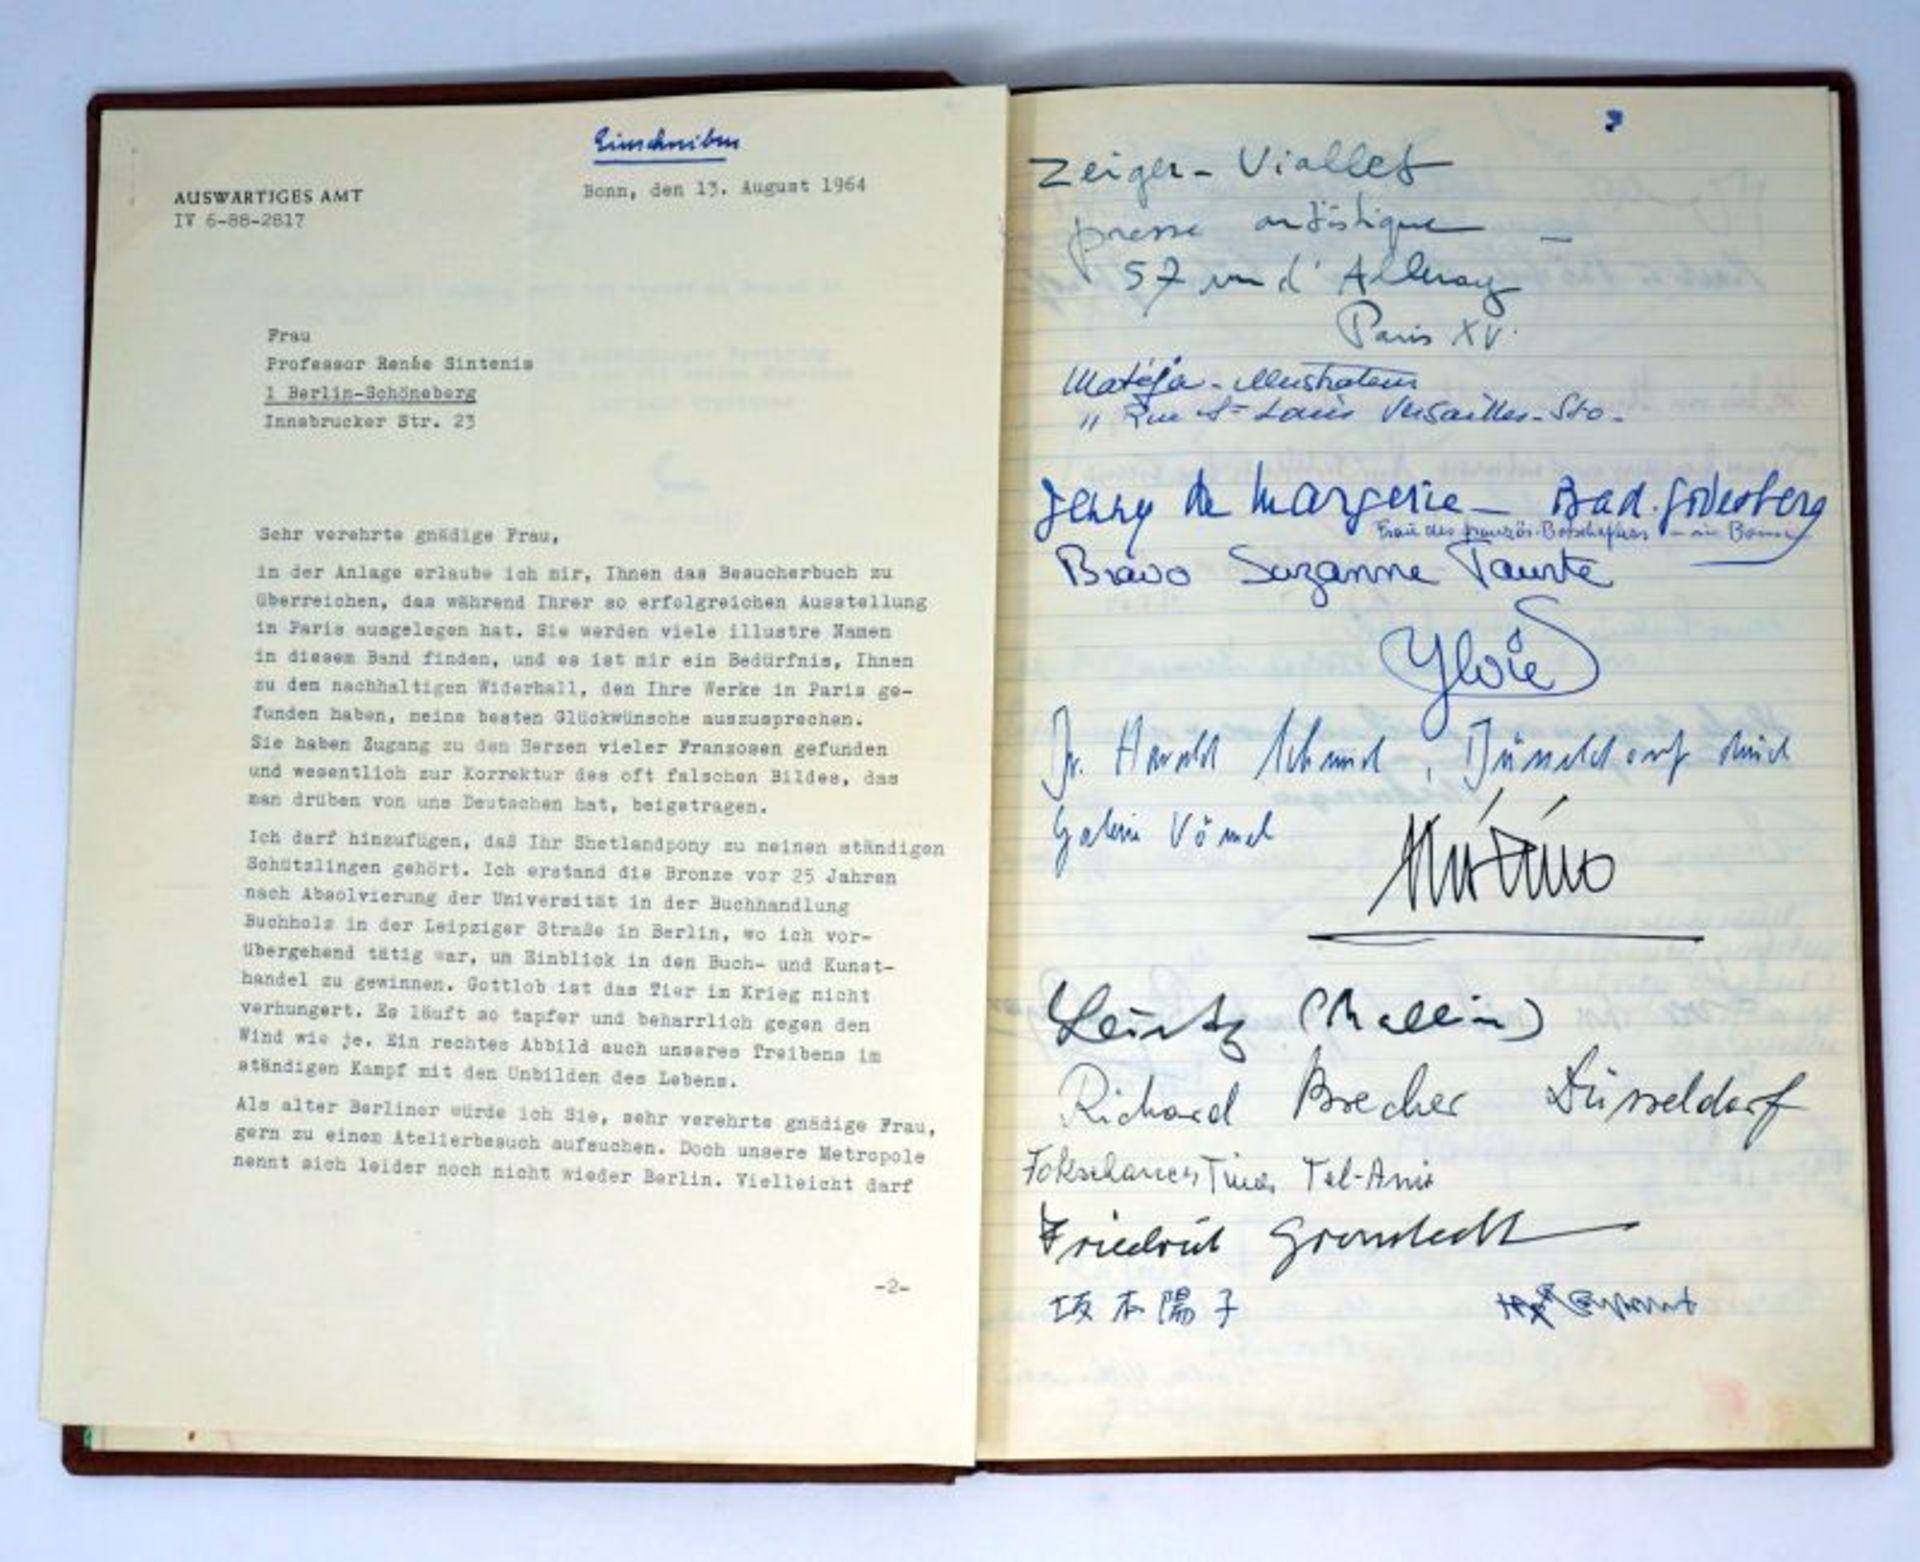 Einschreiben
AUSWÄRTIGES AMT
IV 6-88-2817
Bonn, den 13. August 1964
Frau
Professor Renée Sintenis
1 Berlin-Schöneberg
Innsbrucker Str. 23
Sehr verehrte gnädige Frau,
in der Anlage erlaube ich mir, Ihnen das Besucherbuch zu
überreichen, das während Ihrer so erfolgreichen Ausstellung
in Paris ausgelegen hat. Sie werden viele illustre Namen
in diesem Band finden, und es ist mir ein Bedürfnis, Ihnen
zu dem nachhaltigen Widerhall, den Ihre Werke in Paris ge-
funden haben, meine besten Glückwünsche auszusprechen.
Sie haben Zugang zu den Herzen vieler Franzosen gefunden
und wesentlich zur Korrektur des oft falschen Bildes, das
man drüben von uns Deutschen hat, beigetragen.
Ich darf hinzufügen, daß Ihr Shetlandpony zu meinen ständigen
Schützlingen gehört. Ich erstand die Bronze vor 25 Jahren
nach Absolvierung der Universität in der Buchhandlung
Buchholz in der Leipziger Straße in Berlin, wo ich vor-
übergehend tätig war, um Einblick in den Buch- und Kunst-
handel zu gewinnen. Gottlob ist das Tier im Krieg nicht
verhungert. Es läuft so tapfer und beharrlich gegen den
Wind wie je. Ein rechtes Abbild auch unseres Treibens im
ständigen Kampf mit den Unbilden des Lebens.
Als alter Berliner würde ich Sie, sehr verehrte gnädige Frau,
gern zu einem Atelierbesuch aufsuchen. Doch unsere Metropole
nennt sich leider noch nicht wieder Berlin. Vielleicht darf
-2-
Zeiger-Viallet
presse artistique -
57 rue d'Alleray
Paris XV.
Matéja - illustrateur
11 Rue St Louis Versailles-Sto.
Jenny de Margerie - Bad. Godesberg
Frau des französ. Botschafters - in Bonn
Bravo Suzanne
Dr. Harald Schmid, Düsseldorf durch
Galerie Vömel
Leintz
Richard Brecher Düsseldorf
Tel-Aviv
Friedrich
坂本陽子